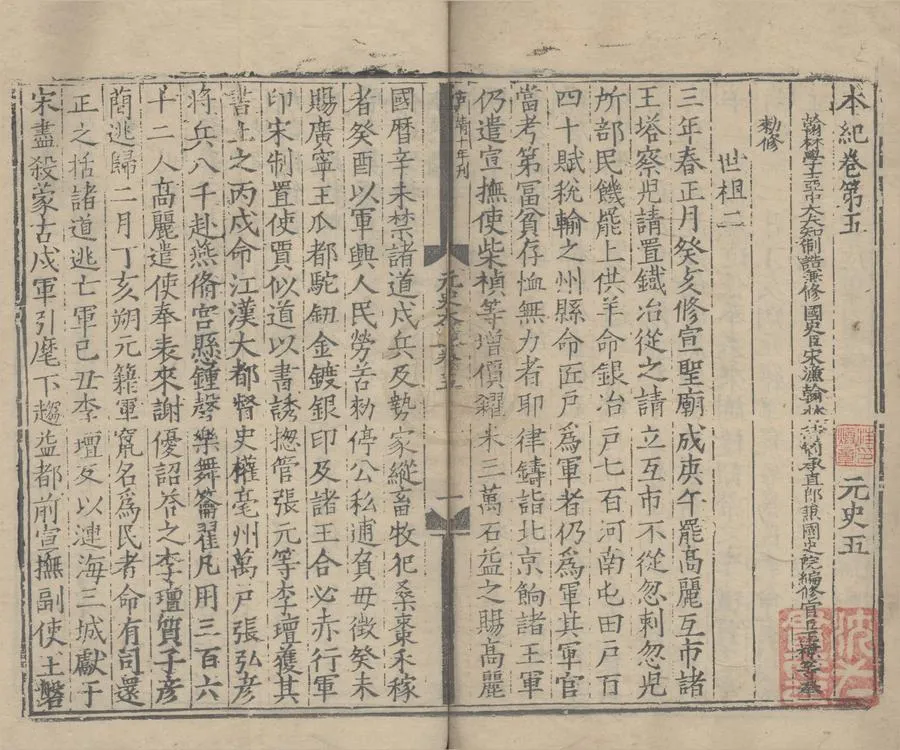 本紀卷第五 元史五
翰林學士亞中大夫知制誥兼修國史臣宋濂翰林待制承直郎兼國史院編修官臣王禕等奉
勑修
世祖二
三年春正月癸亥修宣聖廟成庚午罷高麗互市諸
王塔察兒請置鐵冶從之請立互市不從忽剌忽兒
所部民饑罷上供羊命銀冶戶七百河南屯田戶百
四十賦稅輸之州縣命匠戶爲軍者仍爲軍其軍官
當考第富貧存恤無力者耶律鑄詣北京餉諸王軍
仍遣宣撫使柴楨等增價糴米三萬石益之賜高麗
靖十年刊
元史本紀卷五
一
國曆辛未禁諸道戍兵及勢家縱畜牧犯桑棗禾稼
者癸酉以軍興人民勞苦勑停公私逋負毋徵癸未
賜廣寧王爪都駝鈕金鍍銀印及諸王合必赤行軍
印宋制置使賈似道以書誘揔管張元等李璮獲其
書上之丙戌命江漢大都督史權亳州萬戶張弘彥
將兵八千赴燕脩宮懸鍾磬樂舞籥翟凡用三百六
十二人高麗遣使奉表來謝優詔荅之李璮質子彥
蕳逃歸二月丁亥朔元籍軍竄名爲民者命有司還
正之括諸道逃亡軍己丑李璮反以漣海三城獻于
宋盡殺蒙古戍軍引麾下趨益都前宣撫副使王磐